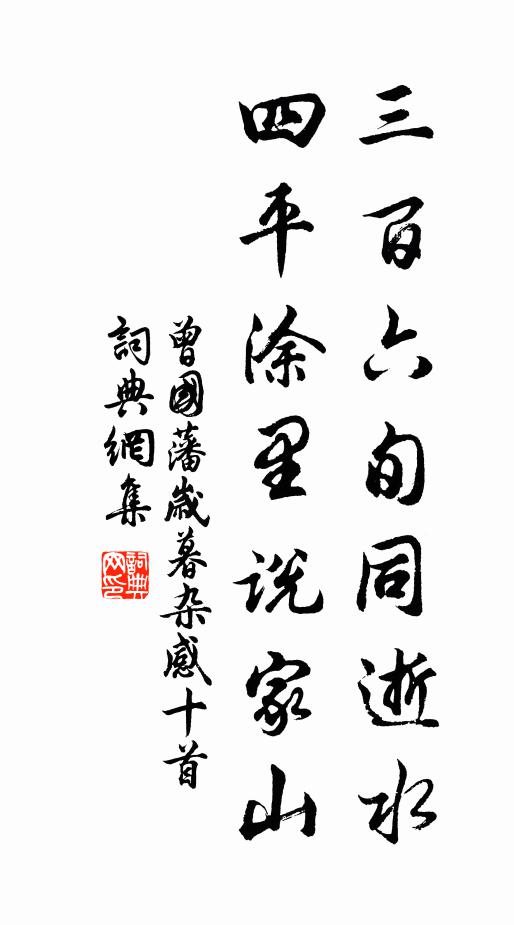 三百六旬同逝水
四平涂里说家山
曾國藩歲暮杂感十首
詞典網集
詞典網印